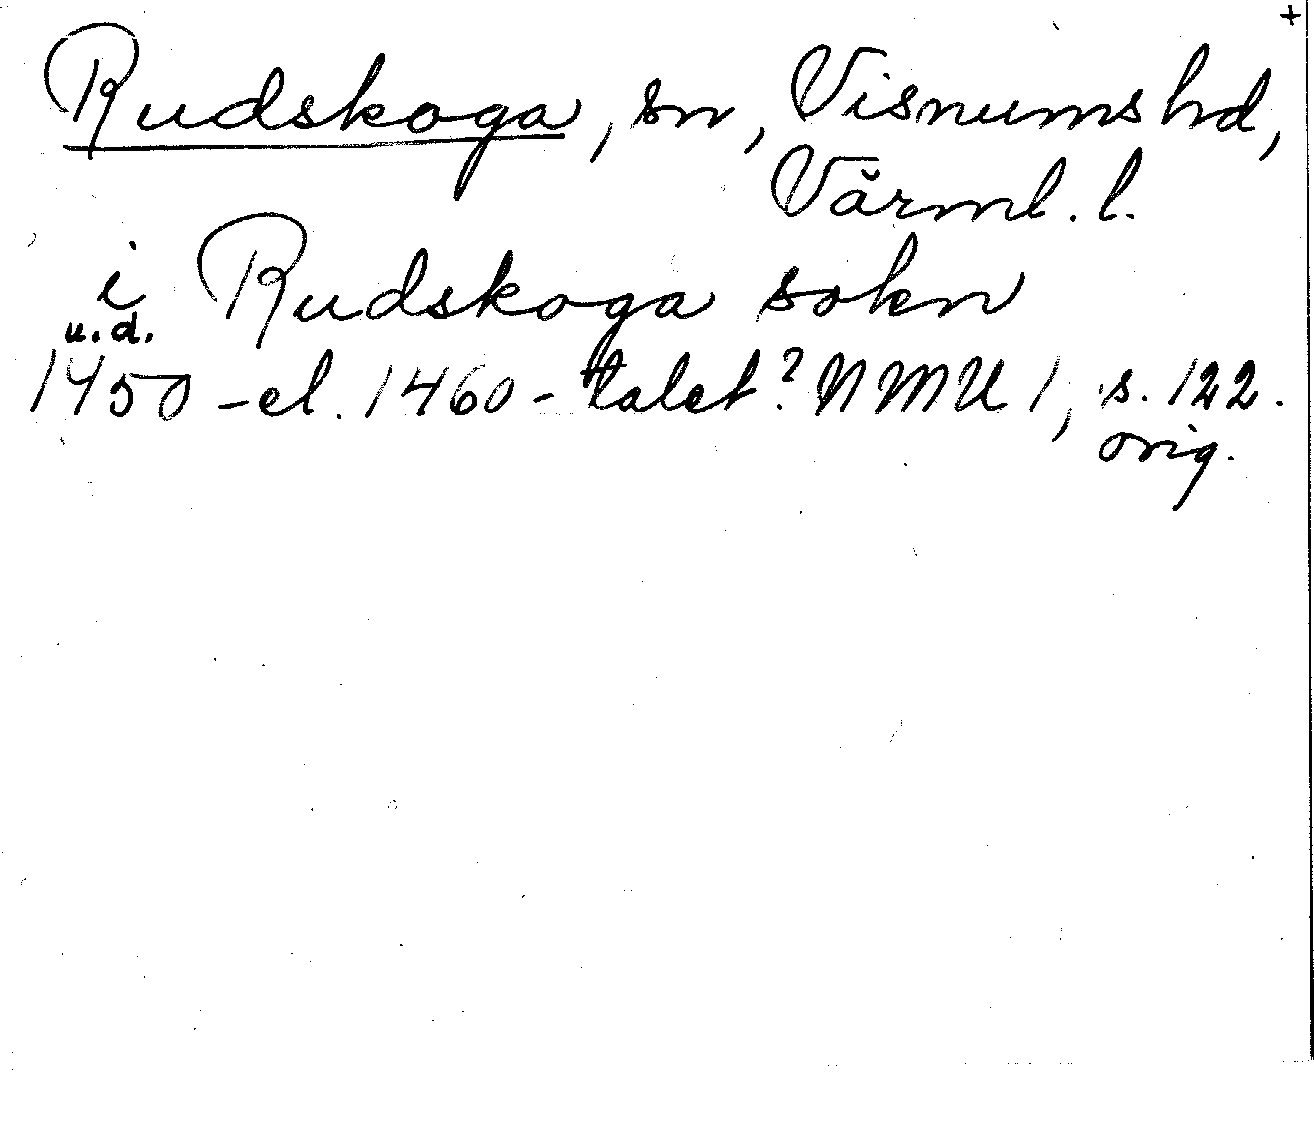 +
Rudskoga, sn, Visnums hd,
Värml. l.
i Rudskoga sokn
u.d.
1450 - el. 1460 - talet? NMU 1, s. 122.
orig.